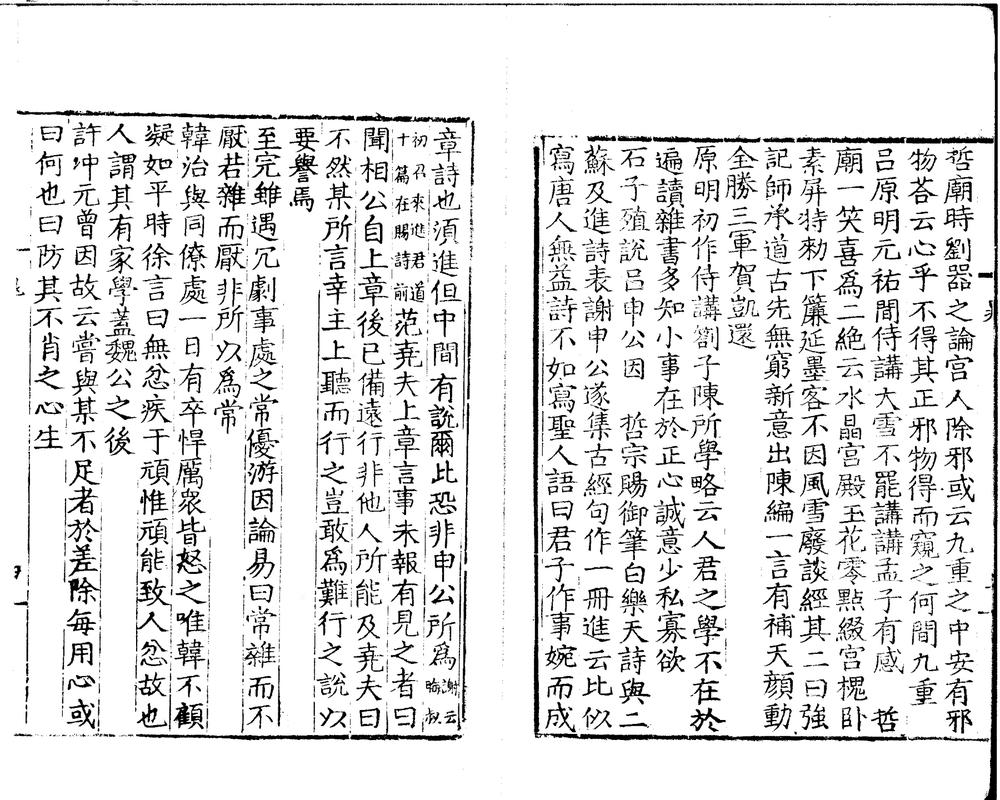 哲廟時劉器之論宮人除邪或云九重之中安有邪
物荅云心乎不得其正邪物得而窺之何間九重
呂原明元祐間侍講大雪不罷講講孟子有感　哲
廟一笑喜爲二絶云水晶宮殿玉花零點綴宮槐卧
素屏特勑下簾延墨客不因風雪廢談經其二曰強
記師承道古先無窮新意出陳編一言有補天顔動
全勝三軍賀凱還
原明初作侍講劄子陳所學略云人君之學不在於
遍讀雜書多知小事在於正心誠意少私寡欲
石子殖說呂申公因　哲宗賜御筆白樂天詩與二
蘇及進詩表謝申公遂集古經句作一冊進云比似
寫唐人無益詩不如寫聖人語曰君子作事婉而成
章詩也須進但中間有說爾比恐非申公所爲謝云晦叔
初召來進君道十篇在賜詩前范堯夫上章言事未報有見之者曰
聞相公自上章後已備遠行非他人所能及堯夫曰
不然某所言幸主上聽而行之豈敢爲難行之說以
要譽焉
至完雖遇冗劇事處之常優游因論易曰常雜而不
厭若雜而厭非所以爲常
韓治與同僚處一日有卒悍厲衆皆怒之唯韓不顧
凝如平時徐言曰無忿疾于頑惟頑能致人忿故也
人謂其有家學蓋魏公之後
許冲元曾因故云嘗與某不足者於差除每用心或
曰何也曰防其不肖之心生